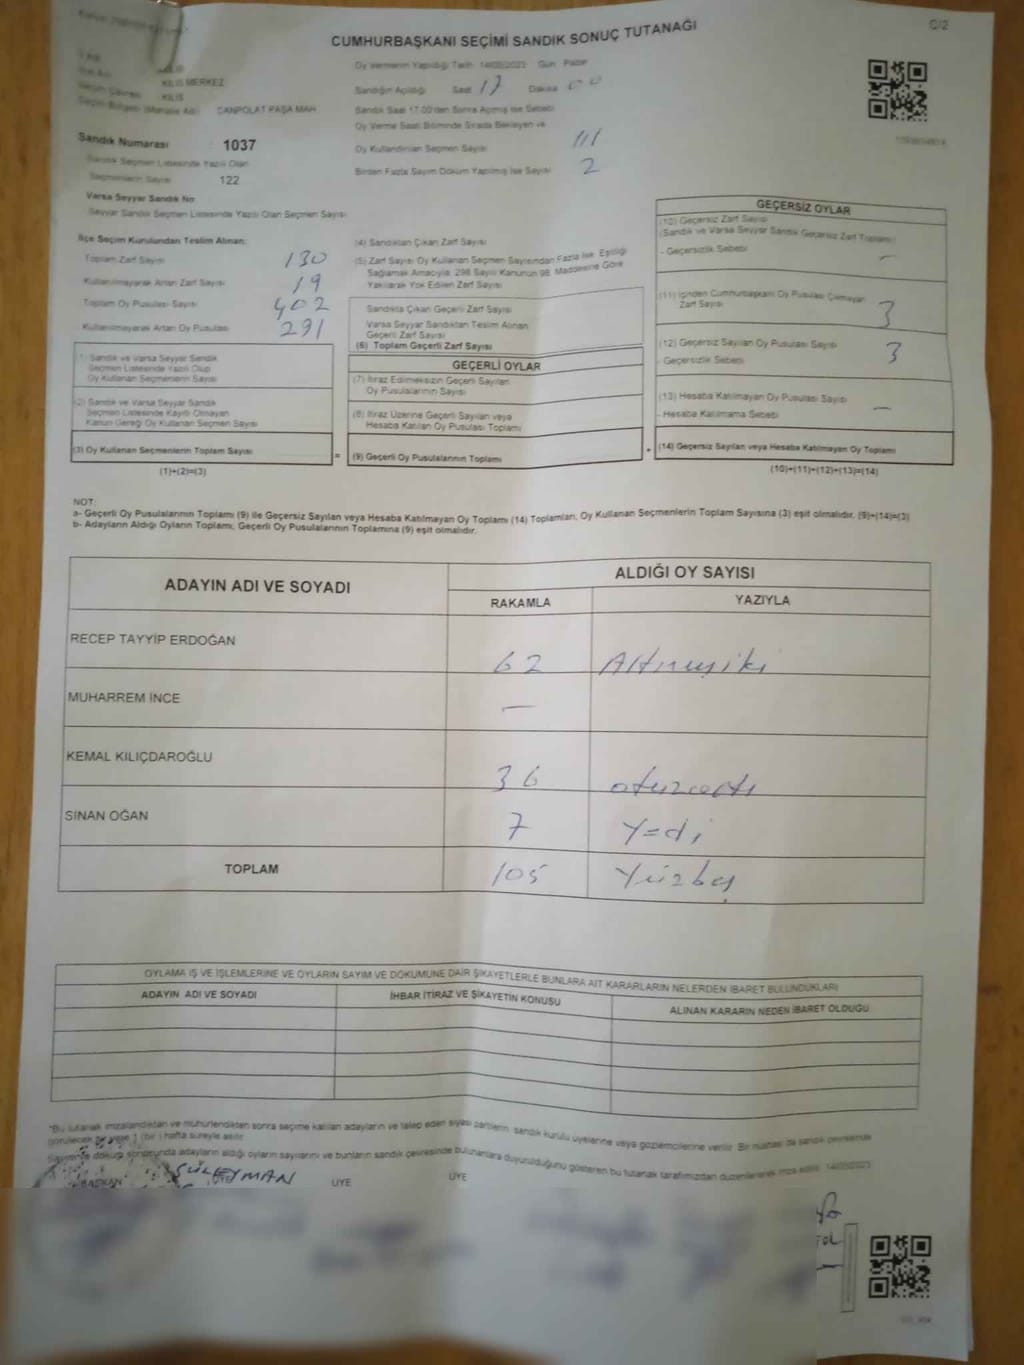 CUMHURBAŞKANI SEÇİMİ SANDIK SONUÇ TUTANAĞI
C/2
KİLİS MERKEZ
KİLİS
CANPOLAT PAŞA MAH
Oy Vermenin Yapıldığı Tarih 14/05/2023 Gün Pazar
Sandığın Açıldığı Saat 17 Dakika 00
Sandık Saat 17.00'den Sonra Açılmış İse Sebebi
Oy Verme Saati Bitiminde Sırada Bekleyen ve
Oy Kullandırılan Seçmen Sayısı
111
Birden Fazla Sayım Döküm Yapılmış İse Sayısı 2
Sandık Numarası : 1037
Sandık Seçmen Listesinde Yazılı Olan
Seçmenlerin Sayısı : 122
Varsa Seyyar Sandık No
Seyyar Sandık Seçmen Listesinde Yazılı Olan Seçmen Sayısı
İlçe Seçim Kurulundan Teslim Alınan:
Toplam Zarf Sayısı 130
Kullanılmayarak Artan Zarf Sayısı 19
Toplam Oy Pusulası Sayısı 402
Kullanılmayarak Artan Oy Pusulası 291
(1) Sandık ve Varsa Seyyar Sandık
Seçmen Listesinde Yazılı Olup
Oy Kullanan Seçmenlerin Sayısı
(2) Sandık ve Varsa Seyyar Sandık
Seçmen Listesinde Kayıtlı Olmayan
Kanun Gereği Oy Kullanan Seçmen Sayısı
(3) Oy Kullanan Seçmenlerin Toplam Sayısı
(1)+(2)=(3)
=
(4) Sandıktan Çıkan Zarf Sayısı
(5) Zarf Sayısı Oy Kullanan Seçmen Sayısından Fazla İse, Eşitliği
Sağlamak Amacıyla, 298 Sayılı Kanunun 98. Maddesine Göre
Yakılarak Yok Edilen Zarf Sayısı
Sandıkta Çıkan Geçerli Zarf Sayısı
Varsa Seyyar Sandıktan Teslim Alınan
Geçerli Zarf Sayısı
(6) Toplam Geçerli Zarf Sayısı
GEÇERLİ OYLAR
(7) İtiraz Edilmeksizin Geçerli Sayılan
Oy Pusulalarının Sayısı
(8) İtiraz Üzerine Geçerli Sayılan veya
Hesaba Katılan Oy Pusulası Toplamı
(9) Geçerli Oy Pusulalarının Toplamı
+
GEÇERSİZ OYLAR
(10) Geçersiz Zarf Sayısı
(Sandık ve Varsa Seyyar Sandık Geçersiz Zarf Toplamı)
- Geçersizlik Sebebi -
(11) İçinden Cumhurbaşkanı Oy Pusulası Çıkmayan
Zarf Sayısı 3
(12) Geçersiz Sayılan Oy Pusulası Sayısı 3
- Geçersizlik Sebebi
(13) Hesaba Katılmayan Oy Pusulası Sayısı
- Hesaba Katılmama Sebebi -
(14) Geçersiz Sayılan veya Hesaba Katılmayan Oy Toplamı
(10)+(11)+(12)+(13)=(14)
NOT:
a- Geçerli Oy Pusulalarının Toplamı (9) ile Geçersiz Sayılan veya Hesaba Katılmayan Oy Toplamı (14) Toplamları, Oy Kullanan Seçmenlerin Toplam Sayısına (3) eşit olmalıdır. (9)+(14)=(3)
b- Adayların Aldığı Oyların Toplamı, Geçerli Oy Pusulalarının Toplamına (9) eşit olmalıdır.
ADAYIN ADI VE SOYADI
ALDIĞI OY SAYISI
RAKAMLA YAZIYLA
RECEP TAYYİP ERDOĞAN 62 Altmışiki
MUHARREM İNCE -
KEMAL KILIÇDAROĞLU 36 otuzaltı
SİNAN OĞAN 7 Yedi
TOPLAM 105 Yüzbeş
OYLAMA İŞ VE İŞLEMLERİNE VE OYLARIN SAYIM VE DÖKÜMÜNE DAİR ŞİKAYETLERLE BUNLARA AİT KARARLARIN NELERDEN İBARET BULUNDUKLARI
ADAYIN ADI VE SOYADI İHBAR İTİRAZ VE ŞİKAYETİN KONUSU ALINAN KARARIN NEDEN İBARET OLDUĞU
*Bu tutanak imzalandıktan ve mühürlendikten sonra seçime katılan adayların ve talep eden siyasi partilerin, sandık kurulu üyelerine veya gözlemcilerine verilir. Bir nüshası da sandık çevresinde
görülecek bir yere 1 (bir) hafta süreyle asılır.
Sayım ve döküm sonucunda adayların aldığı oyların sayılarını ve bunların sandık çevresinde bulunanlara duyurulduğunu gösteren bu tutanak tarafımızdan düzenlenerek imza edildi. 14/05/2023
BAŞKAN
SÜLEYMAN
ÜYE ÜYE ÜYE